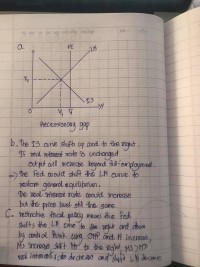 a.
r
FE
LM
r₁
IS
Y₁ Y
Y
Recessionary gap
b. The IS curve shift up and to the right.
If real interest rate is unchanged
output will increase beyond full-employment
=> The Fed could shift the LM curve to
restore general equilibrium.
The real interest rate would increase
but the price level still the same.
C. restrictive fiscal policy mean the Fed
shifts the LM curve to the right and down
by control
MS increase shift to the right, MS > MD
real interest rate decrease and shift LM